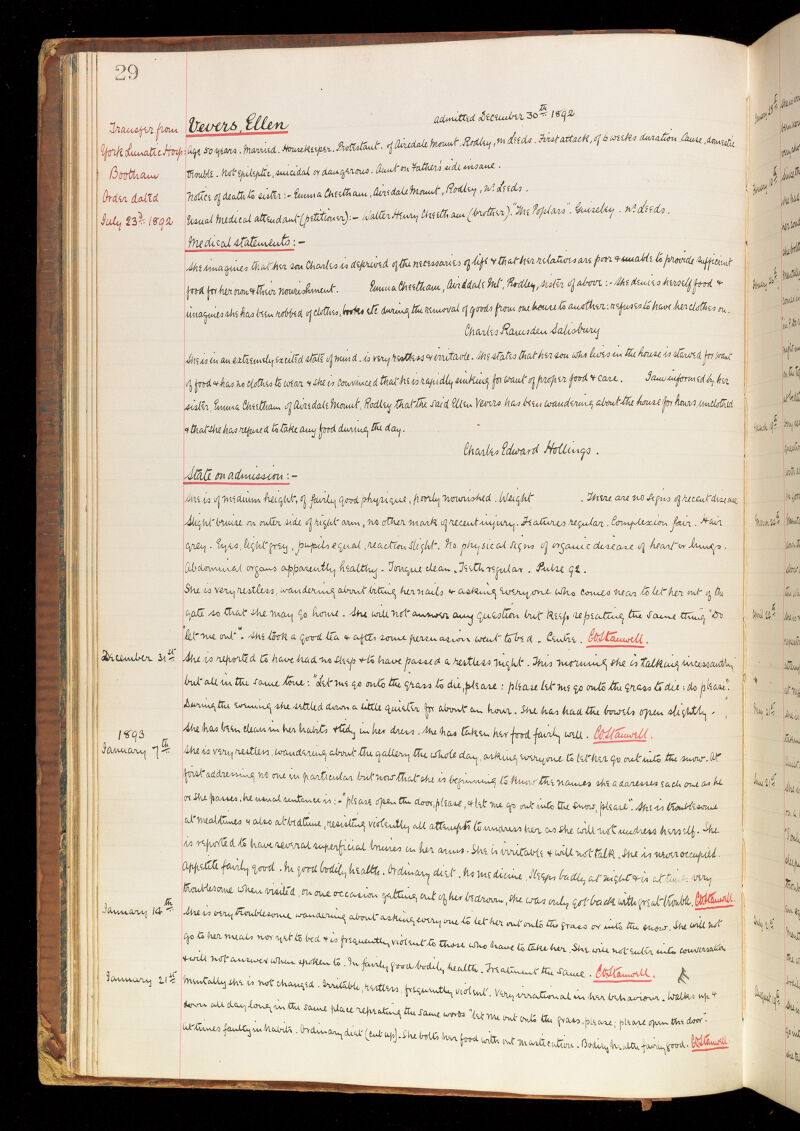 29
admitted December 30th 1892
Vevers, Ellen
Transfer from
York Lunatic Hosp:
Bootham
Order dated
July 23d 1892
age 50 years. Married. Housekeeper. Protestant. of Airedale Mount. Rodley, nr Leeds. First attack, of 6 weeks duration. Cause, domestic
trouble. Not epileptic, suicidal or dangerous. Aunt on Father's side insane.
Notice of death to sister :- Emma Cheetham, Airedale Mount, Rodley, nr Leeds.
Usual Medical attendant (petitioner) :- Walter Henry Cheetham (brother). "The Poplars". Guiseley. nr Leeds.
Medical statements :-
She imagines that her son Charles is deprived of the necessaries of life & that her relatives are poor & unable to provide sufficient
food for her own & their nourishment. Emma Cheetham, Airedale Mt, Rodley, sister of above :- She denies herself food &
imagines she has been robbed of clothes, books etc during the removal of goods from one house to another: refuses to have her clothes on.
Charles Ramsden Salisbury
She is in an extremely excited state of mind. is very restless & irritable. She states that her son who lives in the house is starved for want
of food & has no clothes to wear & she is convinced that he is rapidly sinking for want of proper food & care. I am informed by her
sister Emma Cheetham of Airedale Mount, Rodley that the said Ellen Vevers has been wandering about the house for hours, unclothed
& that she has refused to take any food during the day.
Charles Edward Hollings.
State on admission :-
She is of medium height, of fairly good physique, poorly nourished. Weight . There are no signs of recent disease
Slight bruise on outer side of right arm, no other mark of recent injury. Features regular. Complexion fair. Hair
grey. Eyes, light grey, pupils equal, reaction slight. No physical signs of organic disease of heart or lungs.
Abdominal organs apparently healthy. Tongue clean. Teeth regular. Pulse 92.
She is very restless, wandering about biting her nails & asking every one who comes near to let her out of the
gate so that she may go home. She will not answer any question but keeps repeating the same thing "Do
let me out". She took a good tea & after some persuasion went to bed.
December 31st
She is reported to have had no sleep & to have passed a restless night. This morning she is talking incessantly
but all in the same tone: "Let me go onto the grass to die, please: please let me go onto the grass to die: do please".
During the evening she settled down a little quieter for about an hour. She has had the bowels open slightly.
She has been clean in her habits & tidy in her dress. She has taken her food fairly well.
1893
January 7th
She is very restless, wandering about the gallery the whole day, asking everyone to let her go out into the snow. At
first addressing no one in particular but now that she is beginning to know the names she addresses each one as he
or she passes. her usual sentence is :- "please open the door, please, & let me go out into the snow, please". She is troublesome
at mealtimes & also at bedtime, resisting violently all attempts to undress her as she will not undress herself. She
is reported to have several superficial bruises on her arms. She is irritable & will not talk. She is never occupied.
Appetite fairly good. In good bodily health. Ordinary diet. No medicine. Sleeps badly at night & is at times very
troublesome when visited, on one occasion getting out of her bedroom, she was only got back with great trouble.
January 14th
She is very troublesome wandering about asking every one to let her out onto the grass or into the snow. She will not
go to her meals nor yet to bed & is frequently violent to those who have to take her. She will not enter into conversation
& will not answer when spoken to. In fairly good bodily health. Treatment the same.
January 21st
Mentally she is not changed. Irritable, restless, frequently violent. Very irrational in her behaviour. Walks up &
down all day long in the same place repeating the same words "let me out onto the grass, please, please open the door".
At times faulty in habits. Ordinary diet (cut up). She bolts her food without mastication. Bodily health fairly good.